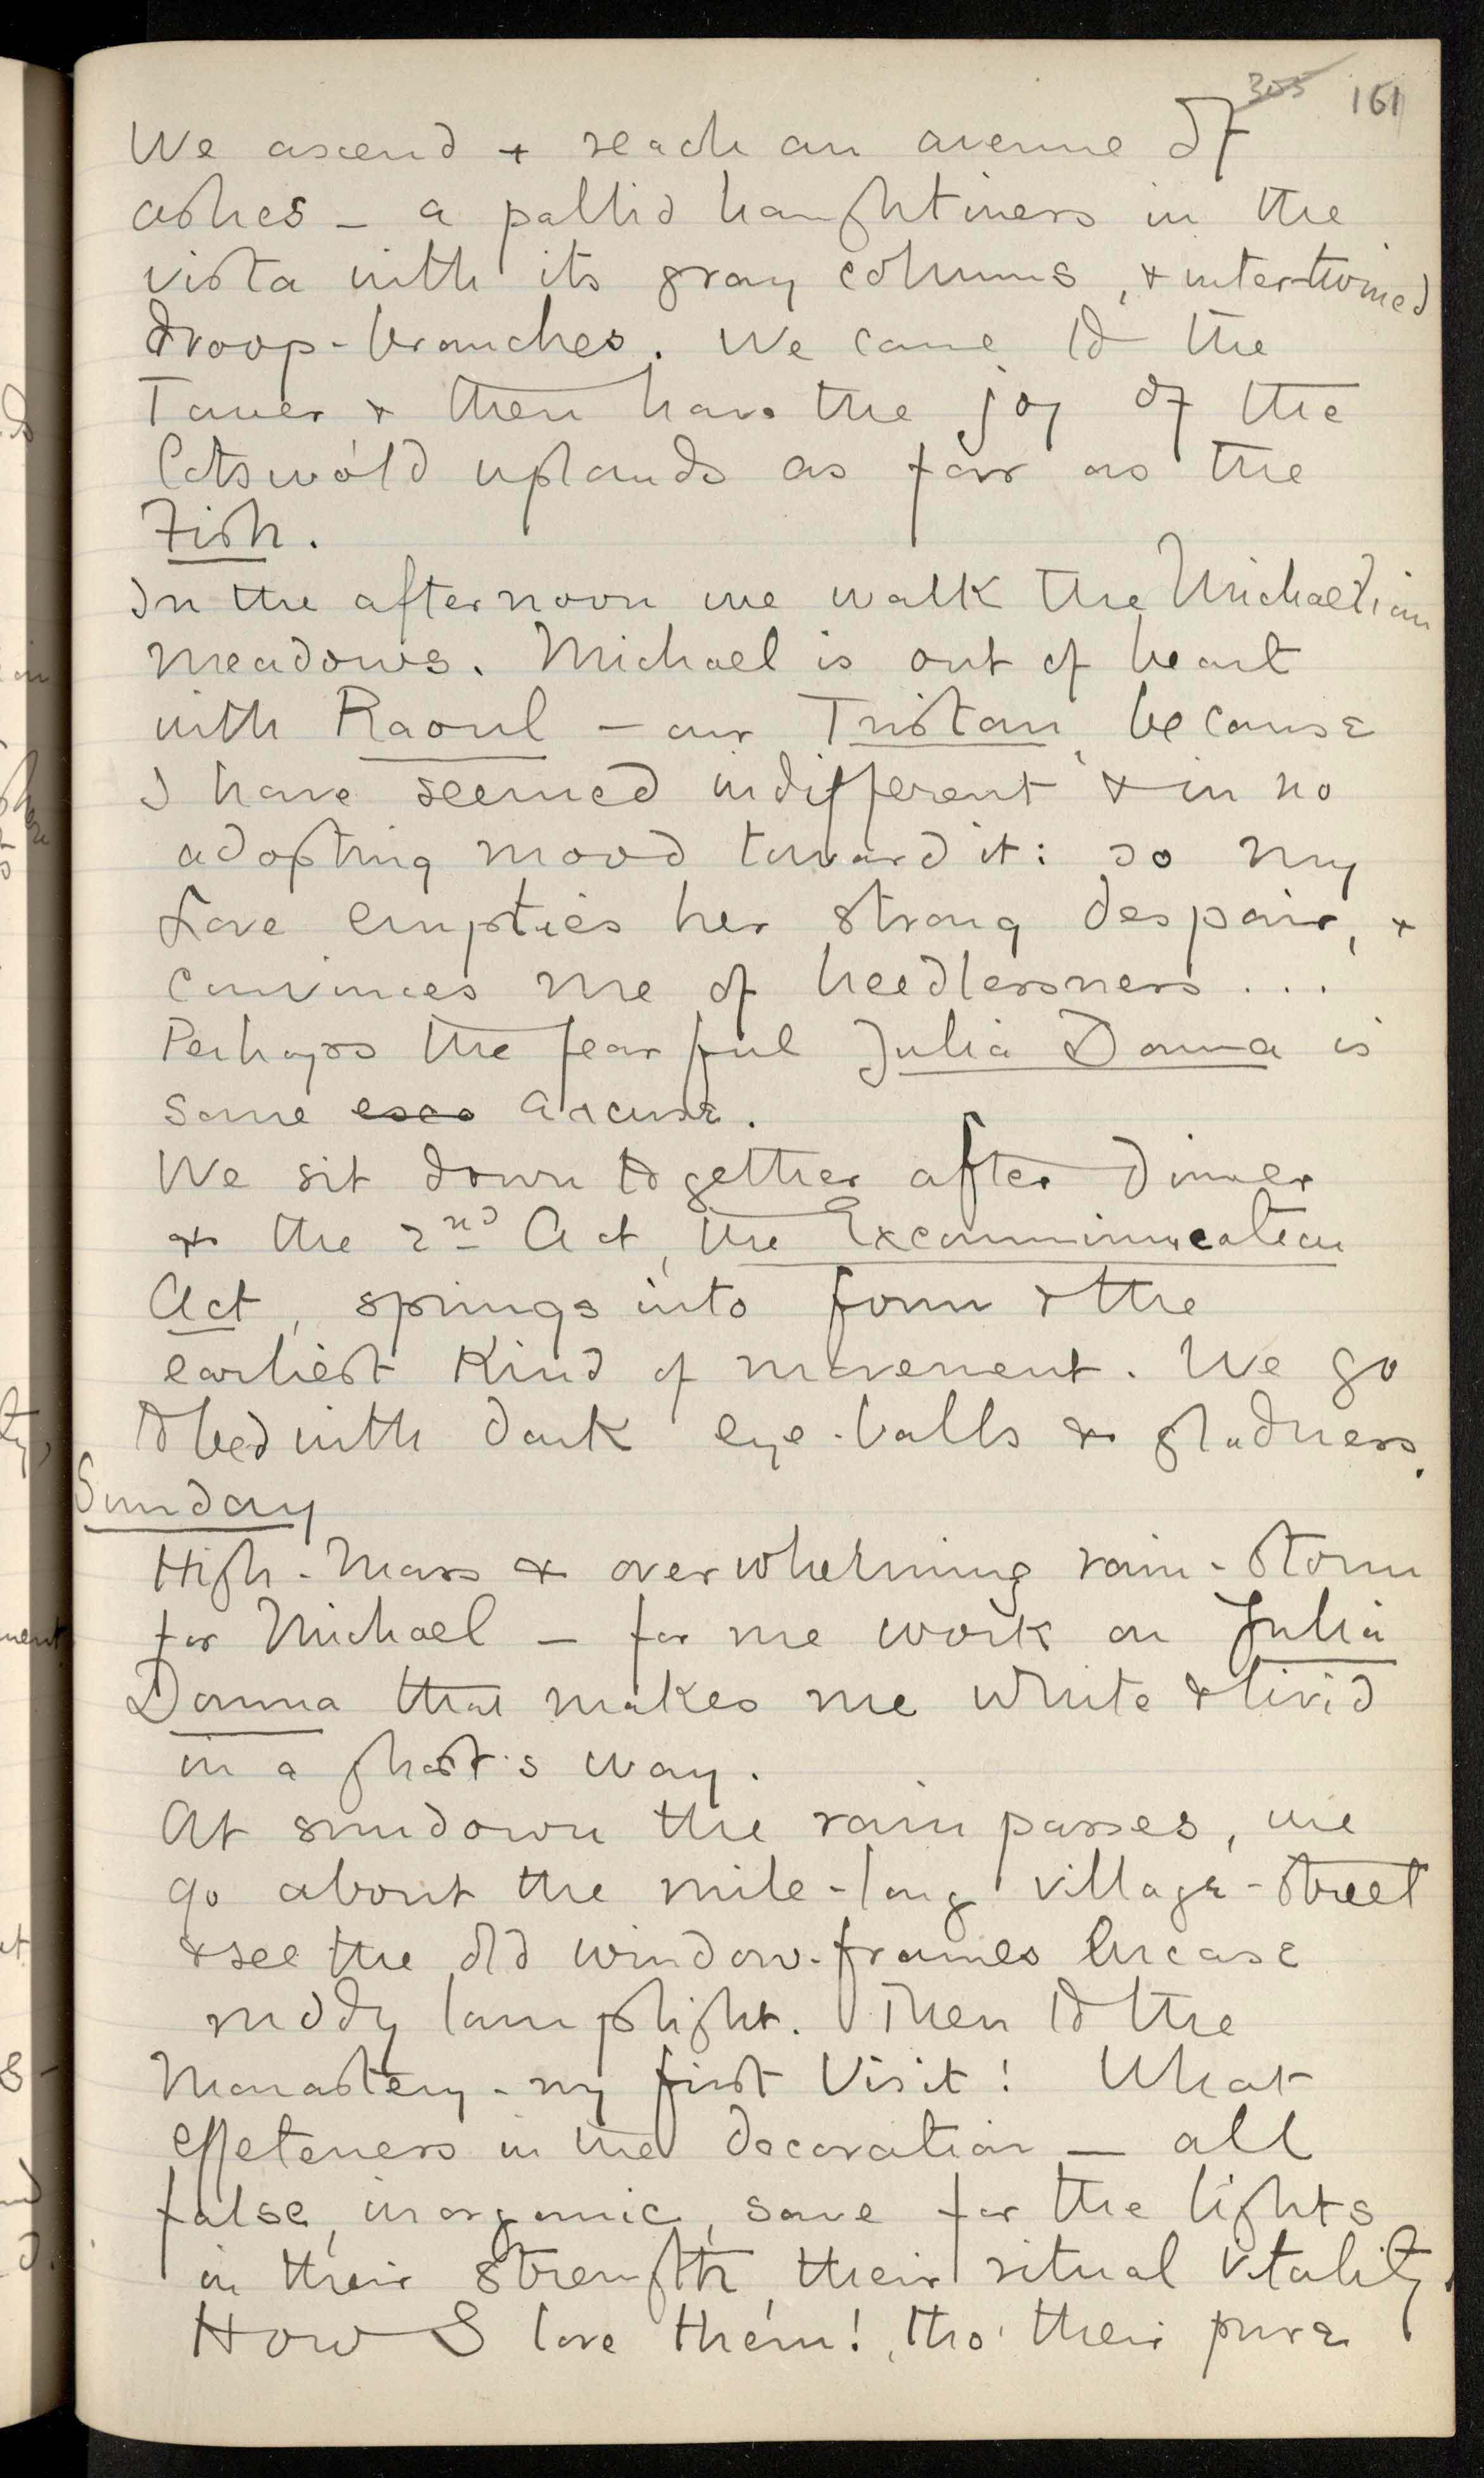 305 161
We ascend + reach an avenue of
ashes – a pallid haughtiness in the
vista with its gray columns, + inter-twined
droop-branches. We come to the
Tower + then have the joy of the
Cotswold uplands as far as the
Fish.
In the afternoon we walk the Michaelian
meadows. Michael is out of heart
with Raoul – our Tristan, because
I have seemed indifferent + in no
adopting mood toward it: so my
Love empties her strong despair, +
convinces me of heedlessness ...
Perhaps the fearful Julia Domna is
some esco excuse.
We sit down together after dinner
+ the 2nd Act, the Excommunication
Act, springs into form + the
earliest kind of movement. We go
to bed with dark eye-balls + gladness.
Sunday
High-Mass + overwhelming rain-storm
for Michael – for me work on Julia
Domna that makes me white + livid
in a ghost's way.
At sundown the rain passes, we
go about the mile-long village-street
+ see the old window-frames encase
ruddy lamplight. Then to the
Monastery – my first visit! What
effeteness in the decoration – all
false, inorganic, save for the lights
in their strength, their ritual vitality.
How I love them! tho' their pure